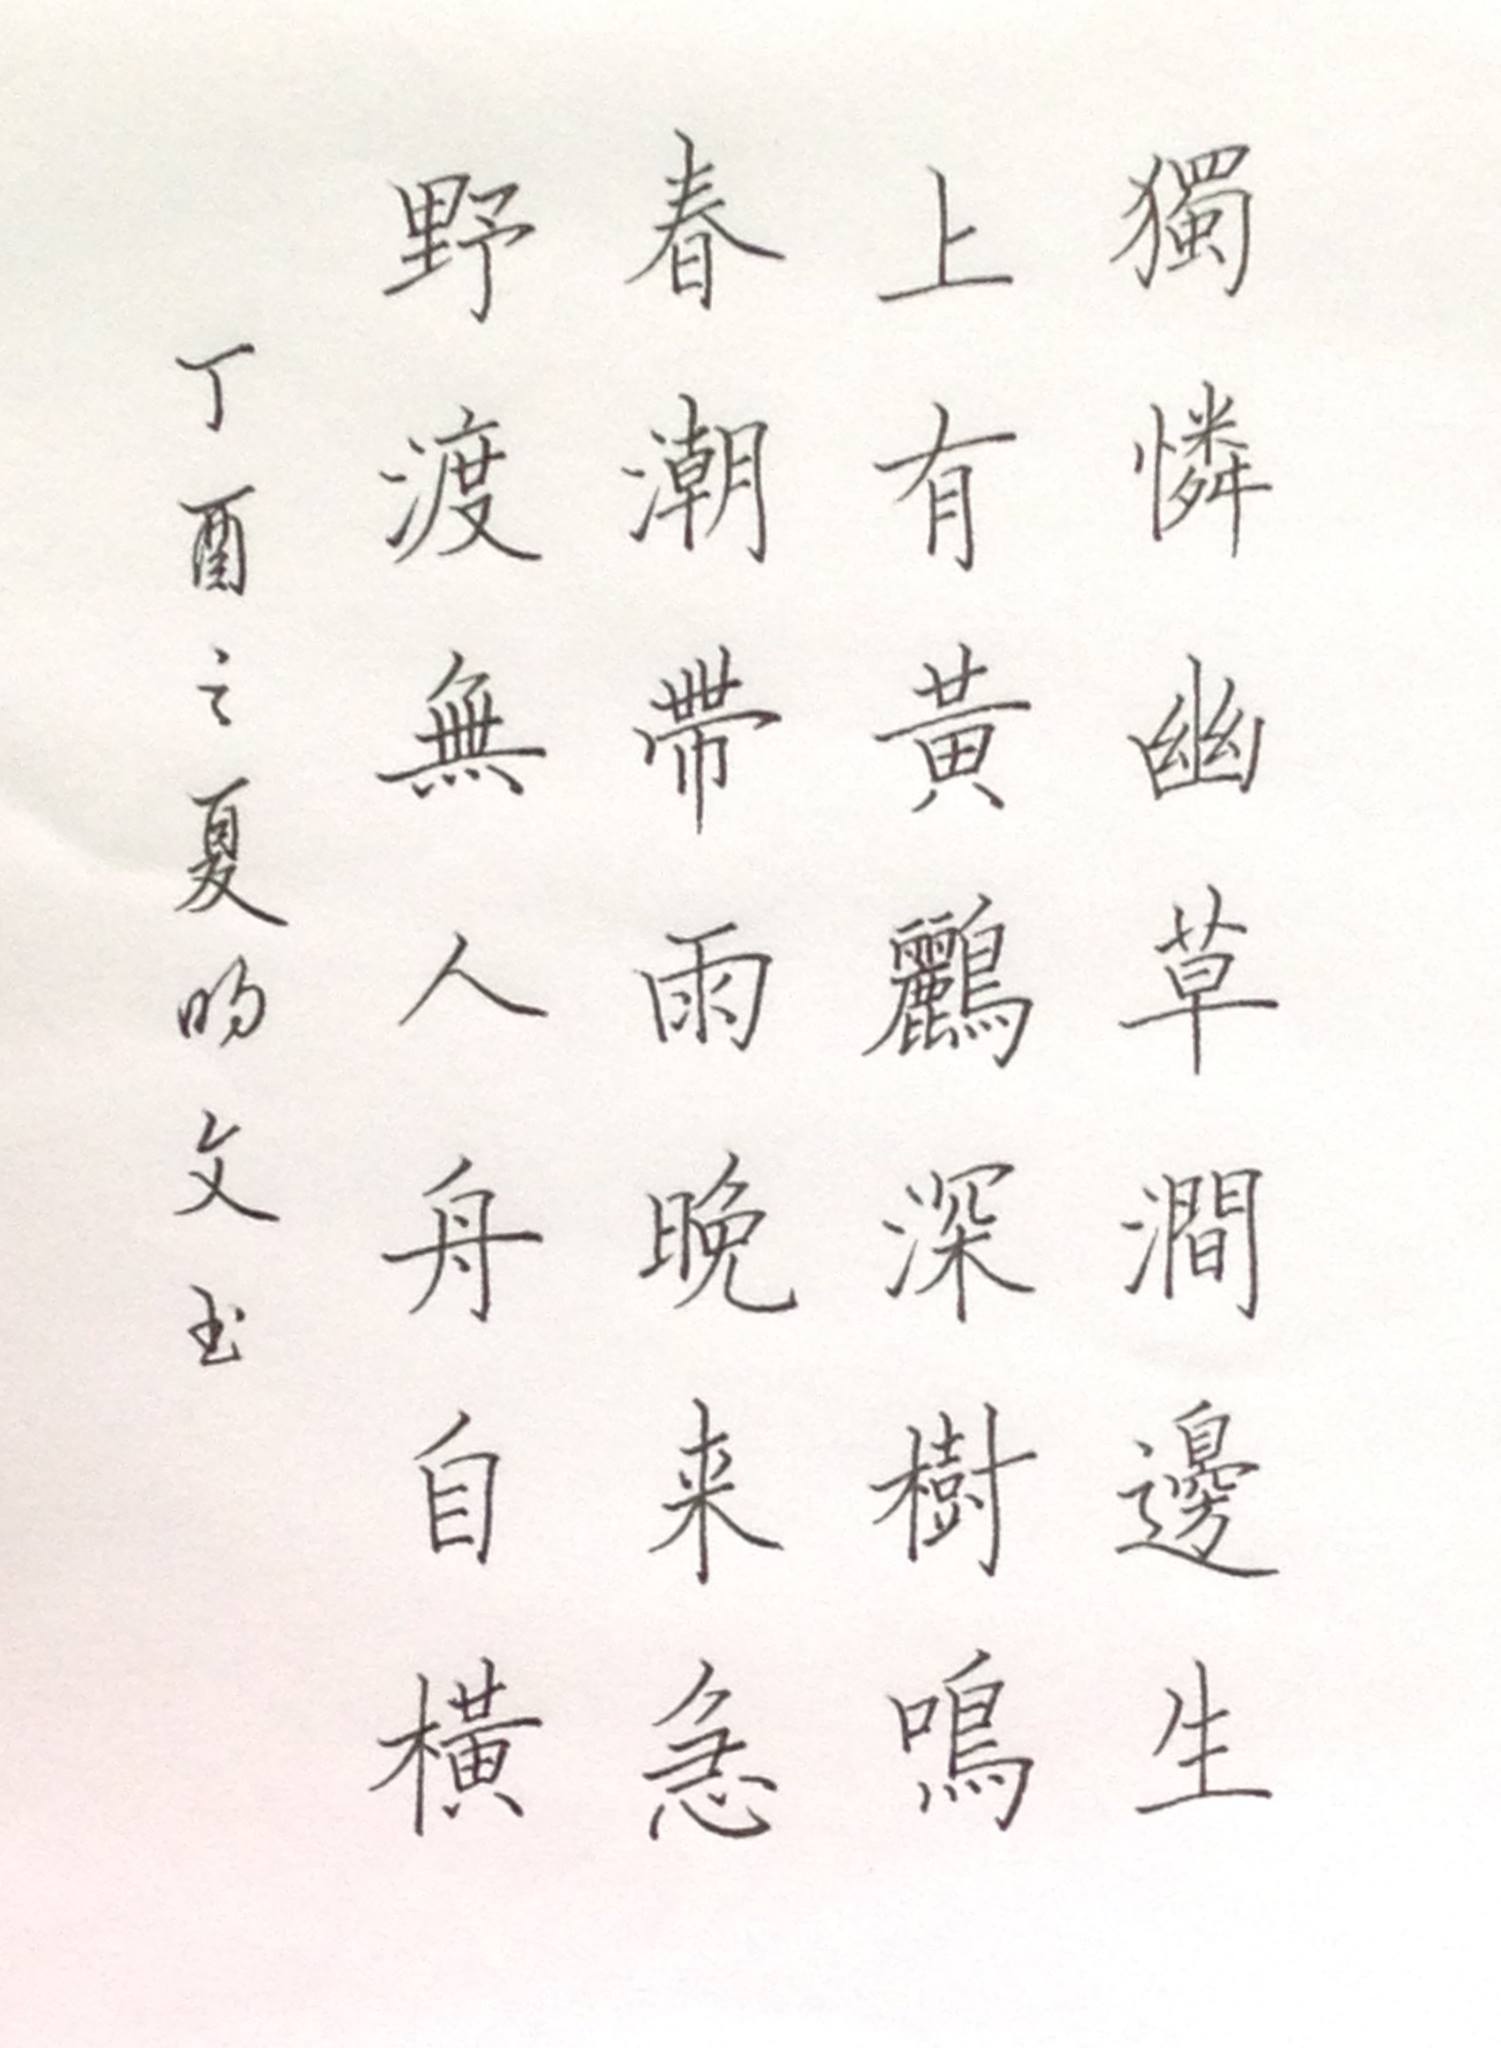 獨憐幽草澗邊生
上有黃鸝深樹鳴
春潮帶雨晚来急
野渡無人舟自橫
丁酉之夏昀文书